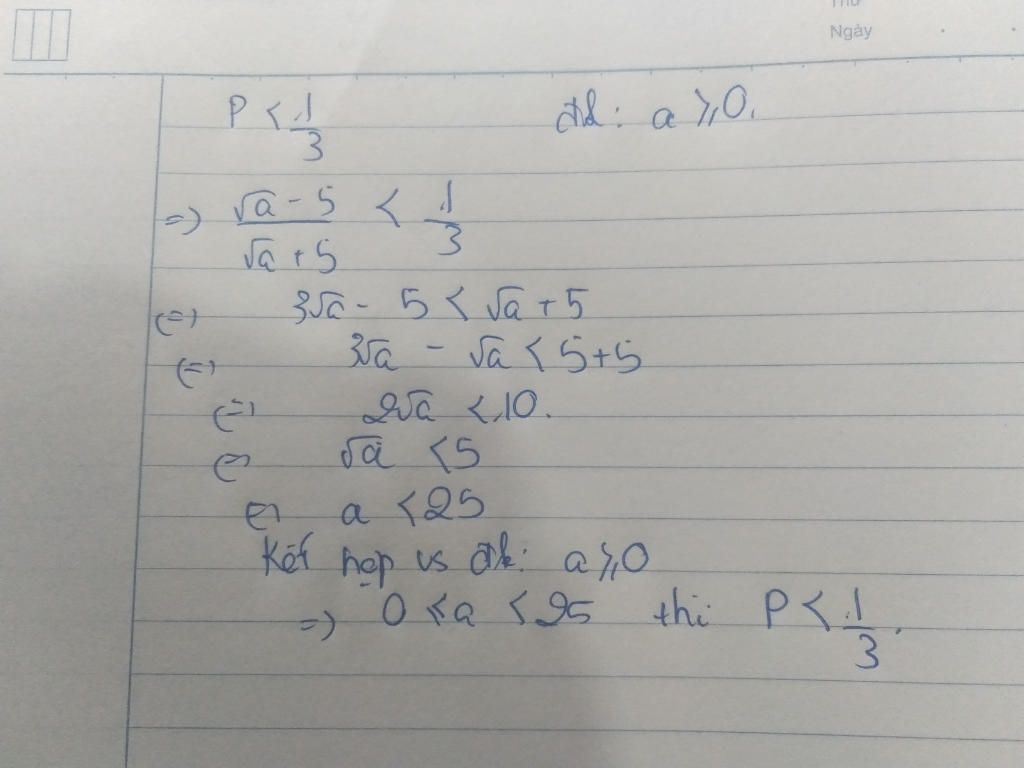 Thứ
Ngày
P < 1/3 đk: a ≥ 0.
=> (√a - 5)/(√a + 5) < 1/3
<=> 3√a - 5 < √a + 5
<=> 3√a - √a < 5+5
<=> 2√a < 10.
<=> √a < 5
<=> a < 25
Kết hợp vs đk: a ≥ 0
=> 0 ≤ a < 25 thì P < 1/3.